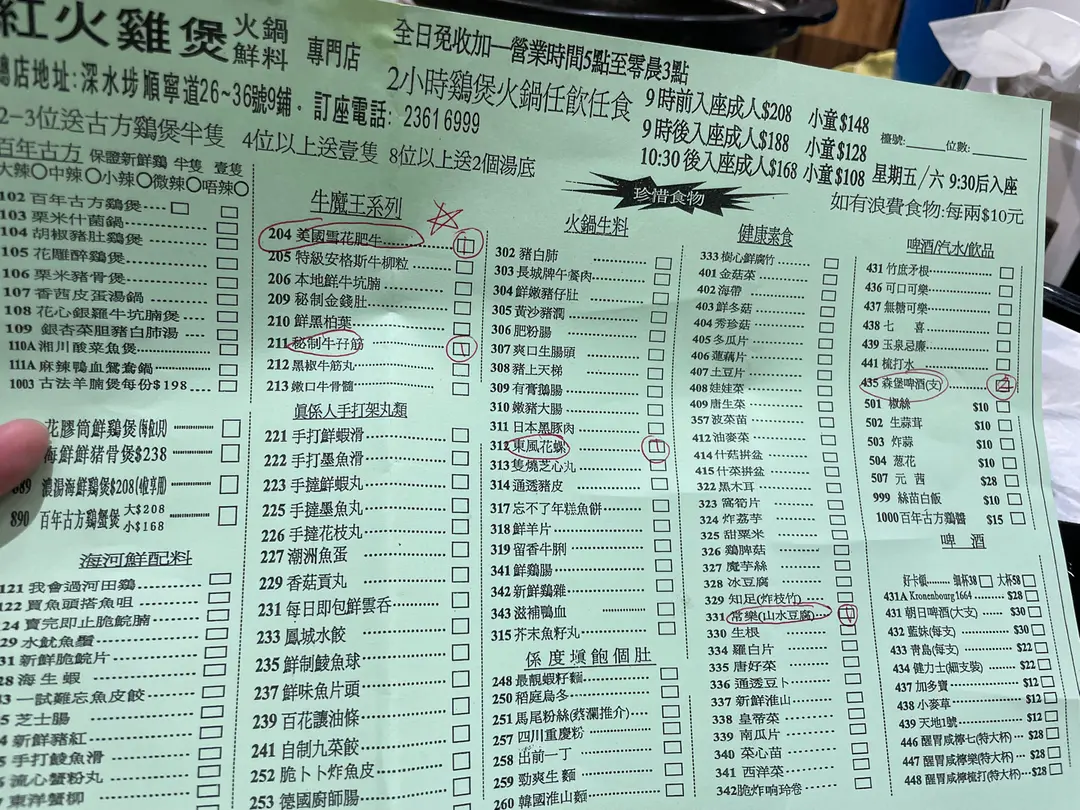 紅火雞煲 火鍋鮮料 專門店
總店地址: 深水埗順寧道26~36號9鋪. 訂座電話: 2361 6999
2-3位送古方鷄煲半隻 4位以上送壹隻 8位以上送2個湯底
全日免收加一營業時間5點至零晨3點
2小時鷄煲火鍋任飲任食
9時前入座成人$208 小童$148
9時後入座成人$188 小童$128
10:30後入座成人$168 小童$108 星期五/六 9:30后入座
檯號: 位數:
珍惜食物
如有浪費食物:每兩$10元
百年古方 保證新鮮鷄 半隻 壹隻
大辣 中辣 小辣 微辣 唔辣
102 百年古方鷄煲
103 栗米什菌鍋
104 胡椒豬肚鷄煲
105 花雕醉鷄煲
106 栗米豬骨煲
107 香茜皮蛋湯鍋
108 花心銀羅牛坑腩煲
109 銀杏菜胆豬白肺湯
110A 湘川酸菜魚煲
111A 麻辣鴨血鴛鴦鍋
1003 古法羊腩煲每份$198
花膠筒鮮鷄煲
海鮮鮮豬骨煲$238
889 濃湯海鮮鷄煲$208
890 百年古方鷄蟹煲 大$208 小$168
海河鮮配料
121 我會過河田鷄
122 買魚頭搭魚咀
124 賣完即止脆皖腩
129 水魷魚鬚
131 新鮮脆皖片
128 海生蝦
一試難忘魚皮餃
芝士腸
新鮮豬紅
手打鯪魚滑
流心蟹粉丸
東洋蟹柳
牛魔王系列
204 美國雪花肥牛
205 特級安格斯牛柳粒
206 本地鮮牛坑腩
209 秘制金錢肚
210 鮮黑柏葉
211 秘制牛孖筋
212 黑椒牛筋丸
213 嫩口牛骨髓
眞係人手打架丸類
221 手打鮮蝦滑
222 手打墨魚滑
223 手撻鮮蝦丸
225 手撻墨魚丸
226 手撻花枝丸
227 潮洲魚蛋
229 香菇貢丸
231 每日即包鮮雲吞
233 鳳城水餃
235 鮮制鯪魚球
237 鮮味魚片頭
239 百花讓油條
241 自制九菜餃
252 脆卜卜炸魚皮
253 德國廚師腸
火鍋生料
302 豬白肺
303 長城牌午餐肉
304 鮮嫩豬仔肚
305 黃沙豬潤
306 肥粉腸
307 爽口生腸頭
308 豬上天梯
309 有膏鵝腸
310 嫩豬大腸
311 日本黑豚肉
312 東風花螺
313 隻燒芝心丸
314 通透豬皮
317 忘不了年糕魚餅
318 鮮羊片
319 留香牛脷
341 鮮鷄腸
342 新鮮鷄雜
343 滋補鴨血
315 芥末魚籽丸
係度塡飽個肚
248 最靚蝦籽麵
250 稻庭烏冬
251 馬尾粉絲(蔡瀾推介)
257 四川重慶粉
258 出前一丁
259 勁爽生麵
260 韓國淮山麵
健康素食
333 樹心鮮腐竹
401 金菇菜
402 海帶
403 鮮冬菇
404 秀珍菇
405 冬瓜片
406 蓮藕片
407 土豆片
408 娃娃菜
409 唐生菜
357 波菜苗
412 油麥菜
414 什菇拼盆
415 什菜拼盆
322 黑木耳
323 窩筍片
324 炸荔芋
325 甜粟米
326 鷄脾菇
327 魔芋絲
328 冰豆腐
329 知足(炸枝竹)
331 常樂(山水豆腐)
330 生根
334 羅白片
335 唐好菜
336 通透豆卜
337 新鮮淮山
338 皇帝菜
339 南瓜片
340 菜心苗
341 西洋菜
342 脆炸响玲卷
啤酒/汽水/飲品
431 竹庶矛根
436 可口可樂
437 無糖可樂
438 七喜
439 玉泉忌廉
441 梳打水
435 森堡啤酒(支)
501 椒絲 $10
502 生蒜茸 $10
503 炸蒜 $10
504 葱花 $10
507 元茜 $28
999 絲苗白飯 $10
1000 百年古方鷄醬 $15
啤酒
好卡頓 細杯38 大杯58
431A Kronenbourg 1664 $28
431 朝日啤酒(大支) $30
432 藍妹(每支) $30
433 靑島(每支) $22
434 健力士(細支裝) $22
437 加多寶 $12
438 小麥草 $12
439 天地1號 $12
446 醒胃咸檸七(特大杯) $28
447 醒胃咸檸樂(特大杯) $28
448 醒胃咸檸梳打(特大杯) $28